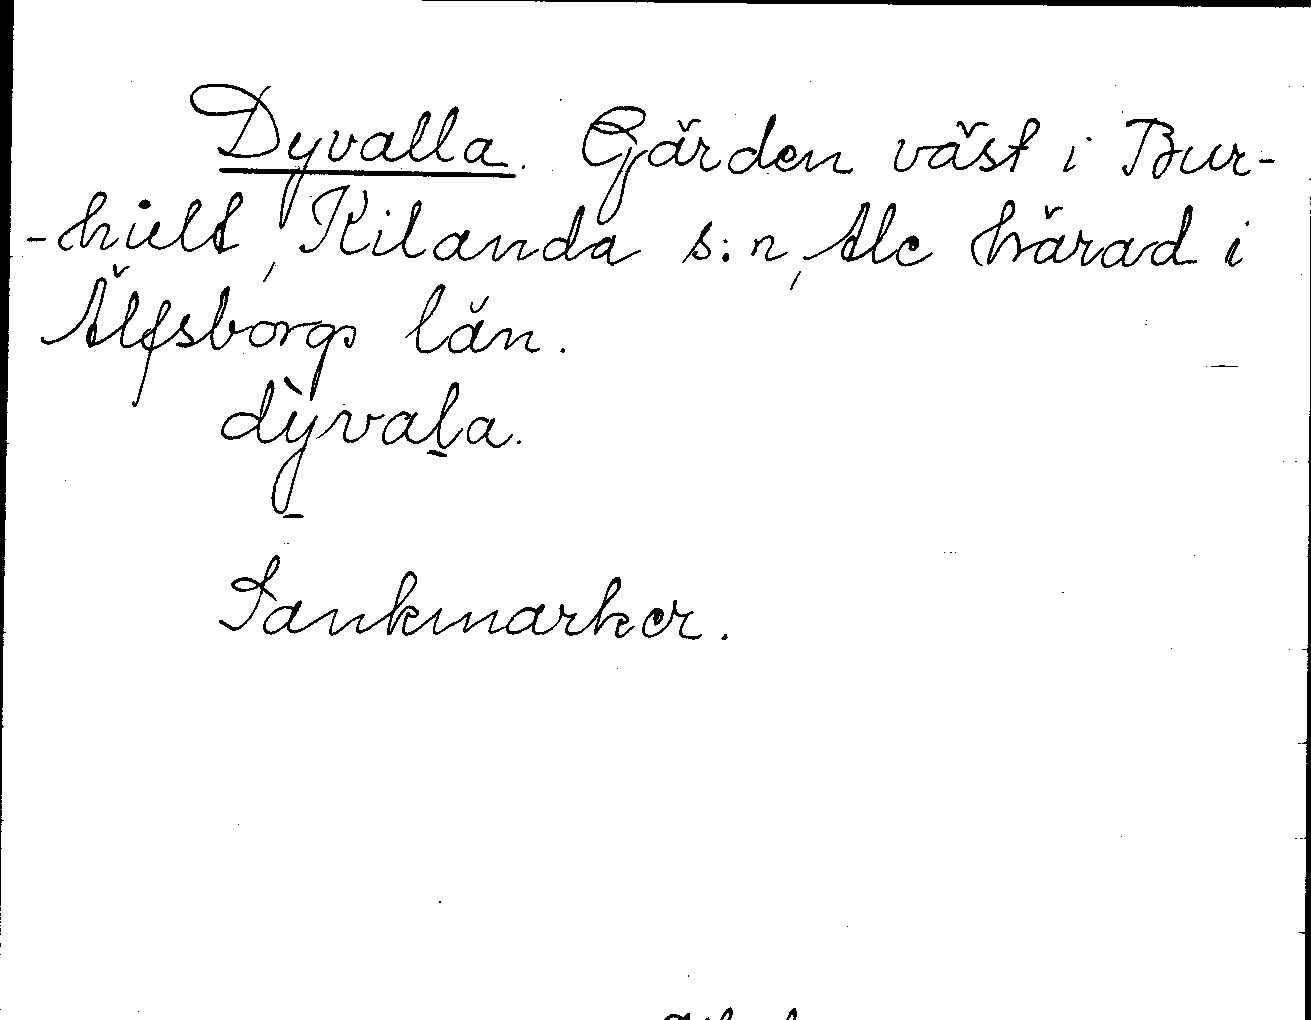 Dyvalla. Gärden väst i Bur-
-hult, Kilanda s:n, Ale härad i
Älfsborgs län.
dỳvala.
Sankmarker.